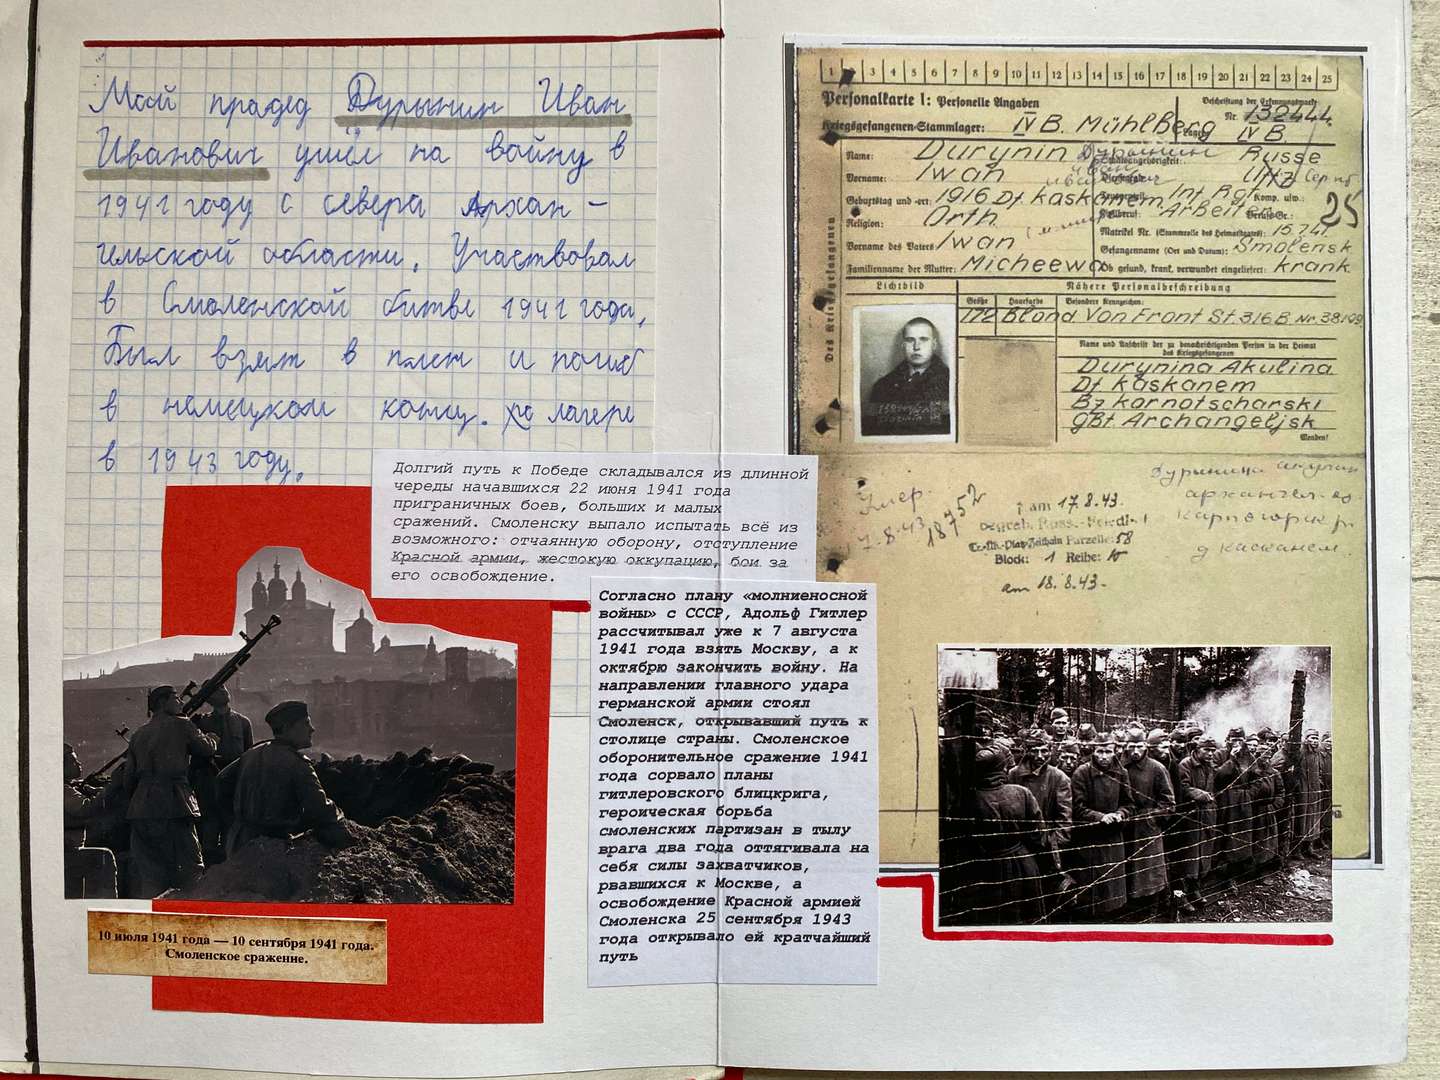 Мой прадед Дурынин Иван
Иванович ушёл на войну в
1941 году с севера Архан-
гельской области. Участвовал
в Смоленской битве 1941 года,
Был взят в плен и погиб
в немецком конц. лагере
в 1943 году.
Долгий путь к Победе складывался из длинной
череды начавшихся 22 июня 1941 года
приграничных боев, больших и малых
сражений. Смоленску выпало испытать всё из
возможного: отчаянную оборону, отступление
Красной армии, жестокую оккупацию, бои за
его освобождение.
Согласно плану «молниеносной
войны» с СССР, Адольф Гитлер
рассчитывал уже к 7 августа
1941 года взять Москву, а к
октябрю закончить войну. На
направлении главного удара
германской армии стоял
Смоленск, открывавший путь к
столице страны. Смоленское
оборонительное сражение 1941
года сорвало планы
гитлеровского блицкрига,
героическая борьба
смоленских партизан в тылу
врага два года оттягивала на
себя силы захватчиков,
рвавшихся к Москве, а
освобождение Красной армией
Смоленска 25 сентября 1943
года открывало ей кратчайший
путь
10 июля 1941 года — 10 сентября 1941 года.
Смоленское сражение.
1 2 3 4 5 6 7 8 9 10 11 12 13 14 15 16 17 18 19 20 21 22 23 24 25
Personalkarte I: Personelle Angaben
Beschriftung der Erkennungsmarke
Kriegsgefangenen-Stammlager: IV B. Mühlberg
Nr. 132444
IV B
Des Kriegsgefangenen
Name: Durynin Дурынин
Staatsangehörigkeit: Russe
Vorname: Iwan Иван
Иванович
Geburtstag und -ort: 1916 Df. Kaskanem
Int. Rgt. Komp. usw.:
Religion: Orth.
Arbeiter
25
Matrikel Nr. (Stammrolle des Heimatstaates): 15.7.41.
Vorname des Vaters: Iwan
Gefangennahme (Ort und Datum): Smolensk
Familienname der Mutter: Micheewa
Ob gesund, krank, verwundet eingeliefert: krank
Lichtbild
Nähere Personalbeschreibung
Größe Haarfarbe Besondere Kennzeichen:
172 Blond Von Front St. 316 B. Nr. 38199
Name und Anschrift der zu benachrichtigenden Person in der Heimat
des Kriegsgefangenen
Durynina Akulina
Df Kaskanem
Bz Kornotscharski
GBt Archangeljsk
Wenden!
Умер.
17.8.43
18752
† am 17.8.43.
Russ.-Friedh.
Zeithain Parzelle: 58
Block: 1 Reihe: 10
am 18.8.43.
Дурынина
Карпогорск р.
д Касканем.